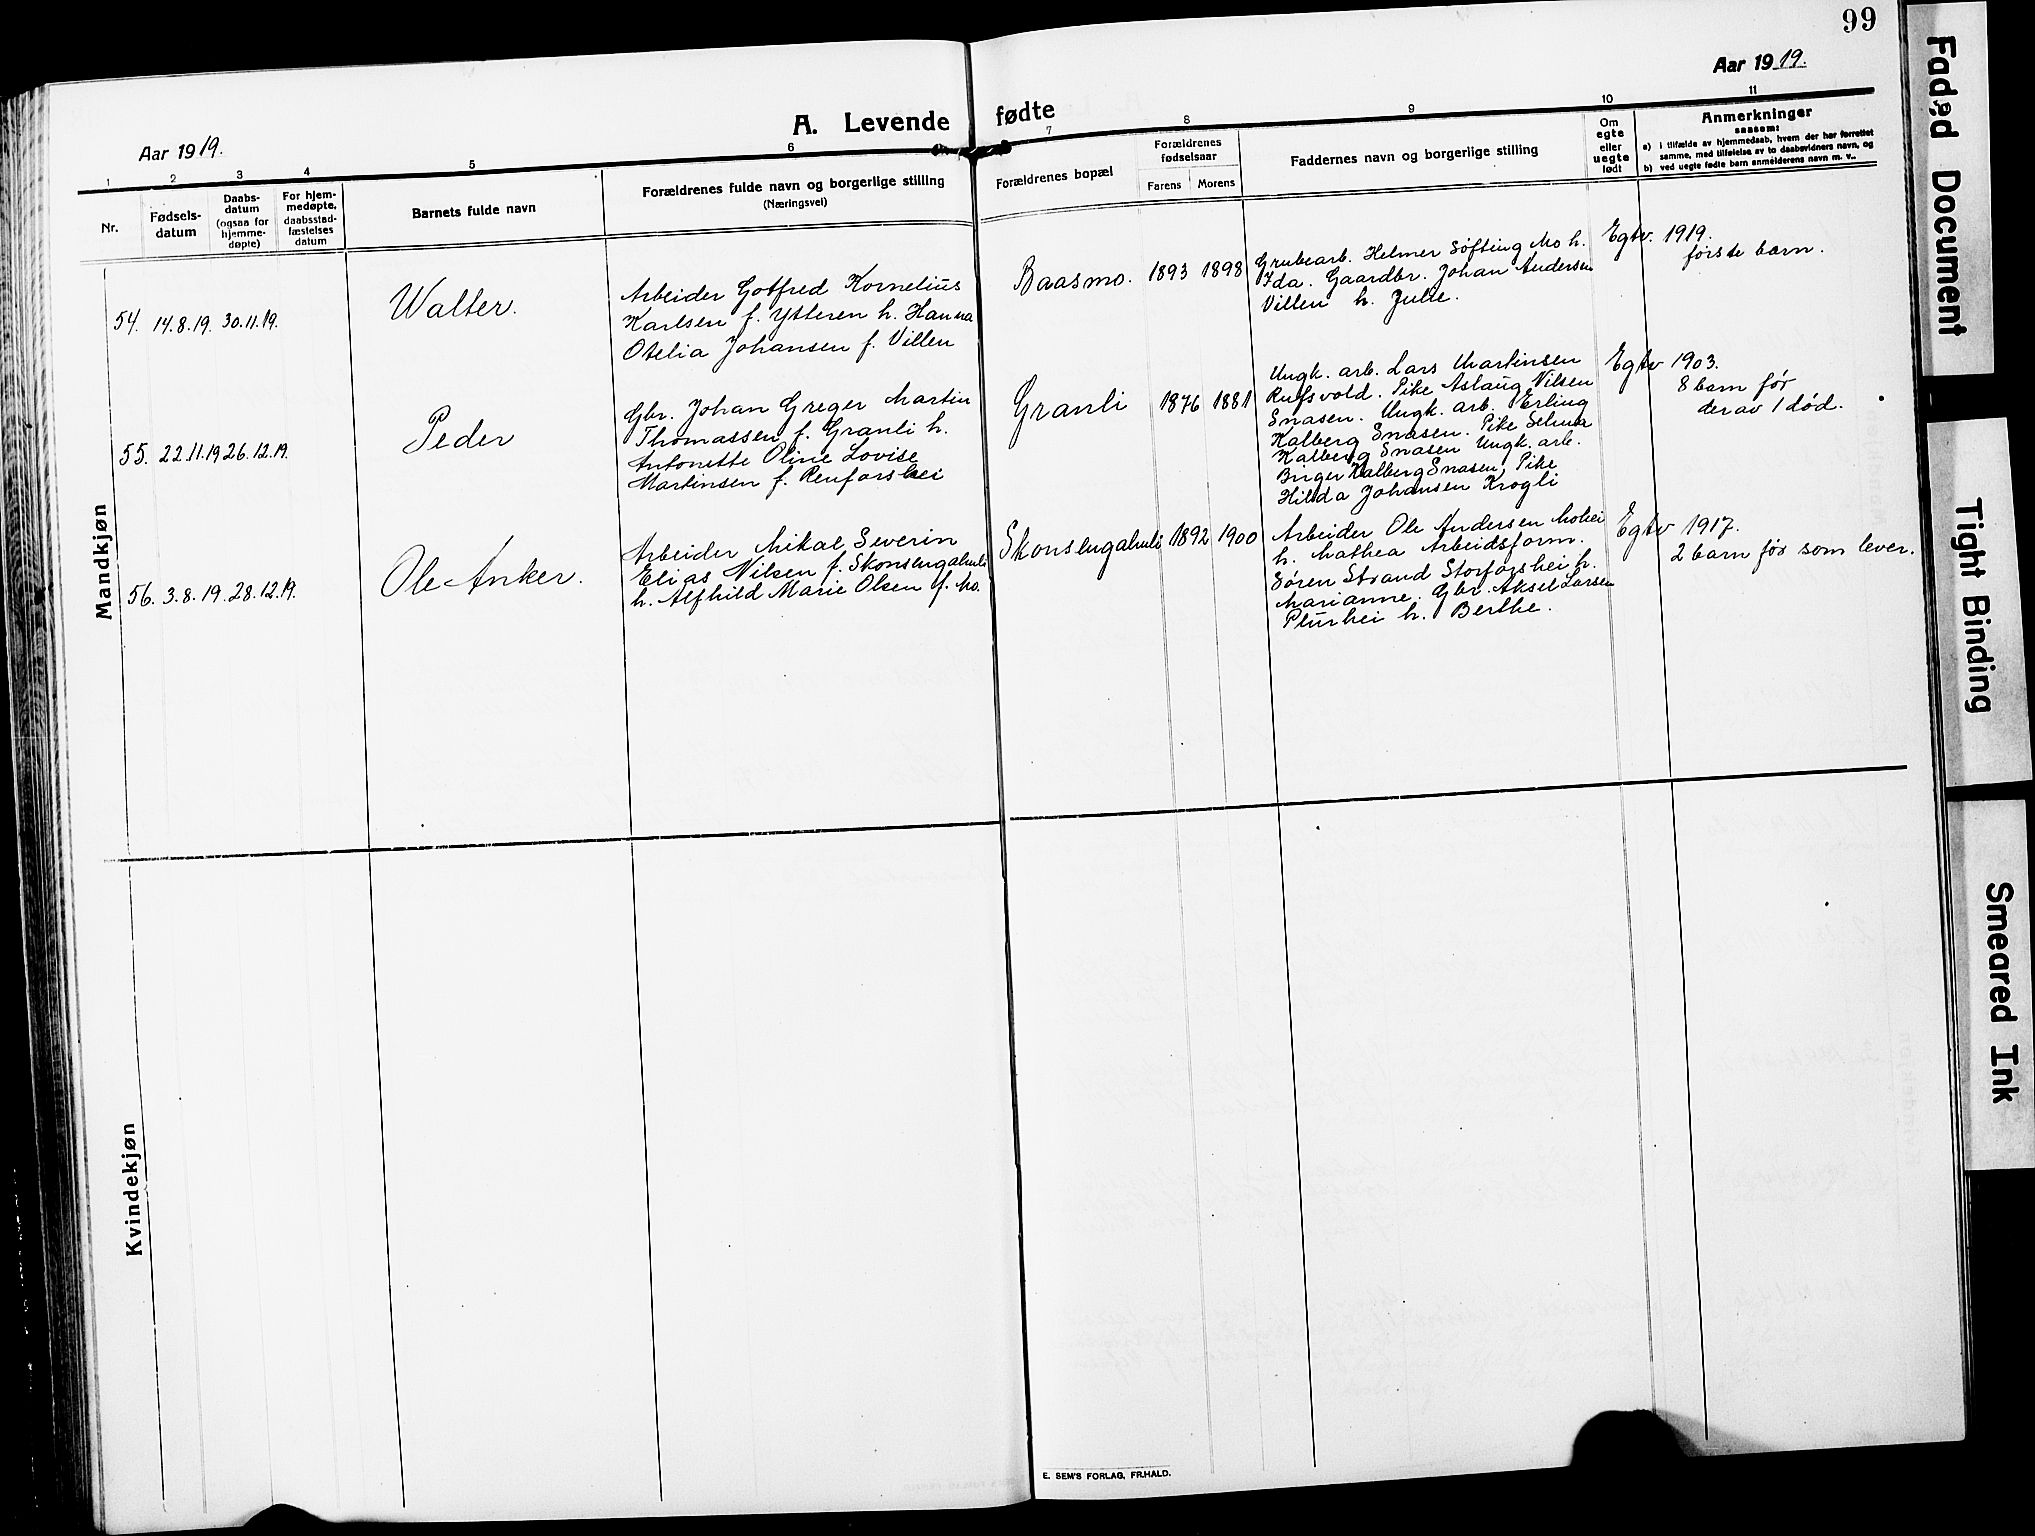 99
Aar 1919.
A. Levende fødte
Aar 1919.
1 2 3 4 5 6 7 8 9 10 11
Nr.
Fødsels-
datum
Daabs-
datum
(ogsaa for
hjemme-
døpte)
For hjem-
medøpte,
daabsstad-
fæstelses
datum
Barnets fulde navn
Forældrenes fulde navn og borgerlige stilling
(Næringsvei)
Forældrenes bopæl
Forældrenes
fødselsaar
Farens Morens
Faddernes navn og borgerlige stilling
Om
egte
eller
uegte
født
Anmerkninger
saasom:
a) i tilfælde av hjemmedaab, hvem der har forrettet
samme, med tilføielse av to daabsvidners navn, og
b) ved uegte fødte barn anmelderens navn m. v..
Mandkjøn
54. 14.8.19. 30.11.19.
Walter.
Arbeider Gotfred Kornelius
Karlsen f. Ytteren h. Hanna
Otelia Johansen f. Villen
Baasmo. 1893 1898
Grubearb. Helmer Søfting Mo h.
Ida. Gaardbr. Johan Andersen
Villen h. Julie.
Egtev. 1919.
første barn.
55. 22.11.19 26.12.19.
Peder
Gbr. Johan Greger Martin
Thomassen f. Granli h.
Antonette Oline Lovise
Martinsen f. Renforshei
Granli 1876 1881
Ungk. arb. Lars Martinsen
Rufsvold. Pike Aslaug Nilsen
Snasen. Ungk. arb. Erling
Kalberg Snasen. Pike Selma
Kalberg Snasen Ungk. arb.
Birger Kalberg Snasen, Pike
Hilda Johansen Krogli
Egtv 1903.
8 barn før
derav 1 død.
56. 3.8.19. 28.12.19.
Ole Anker.
Arbeider Mikal Severin
Elias Nilsen f. Skonsengahuli
h. Alfhild Marie Olsen f. Mo.
Skonsengahuli 1892 1900
Arbeider Ole Andersen Mohei
h. Mathea Arbeidsform.
Søren Strand Storforshei h.
Marianne. Gbr. Aksel Larsen
Plurhei h. Berthe.
Egtv 1917.
2 barn før som lever.
Kvindekjøn
E. SEM'S FORLAG, FR.HALD.
Faded Document
Tight Binding
Smeared Ink